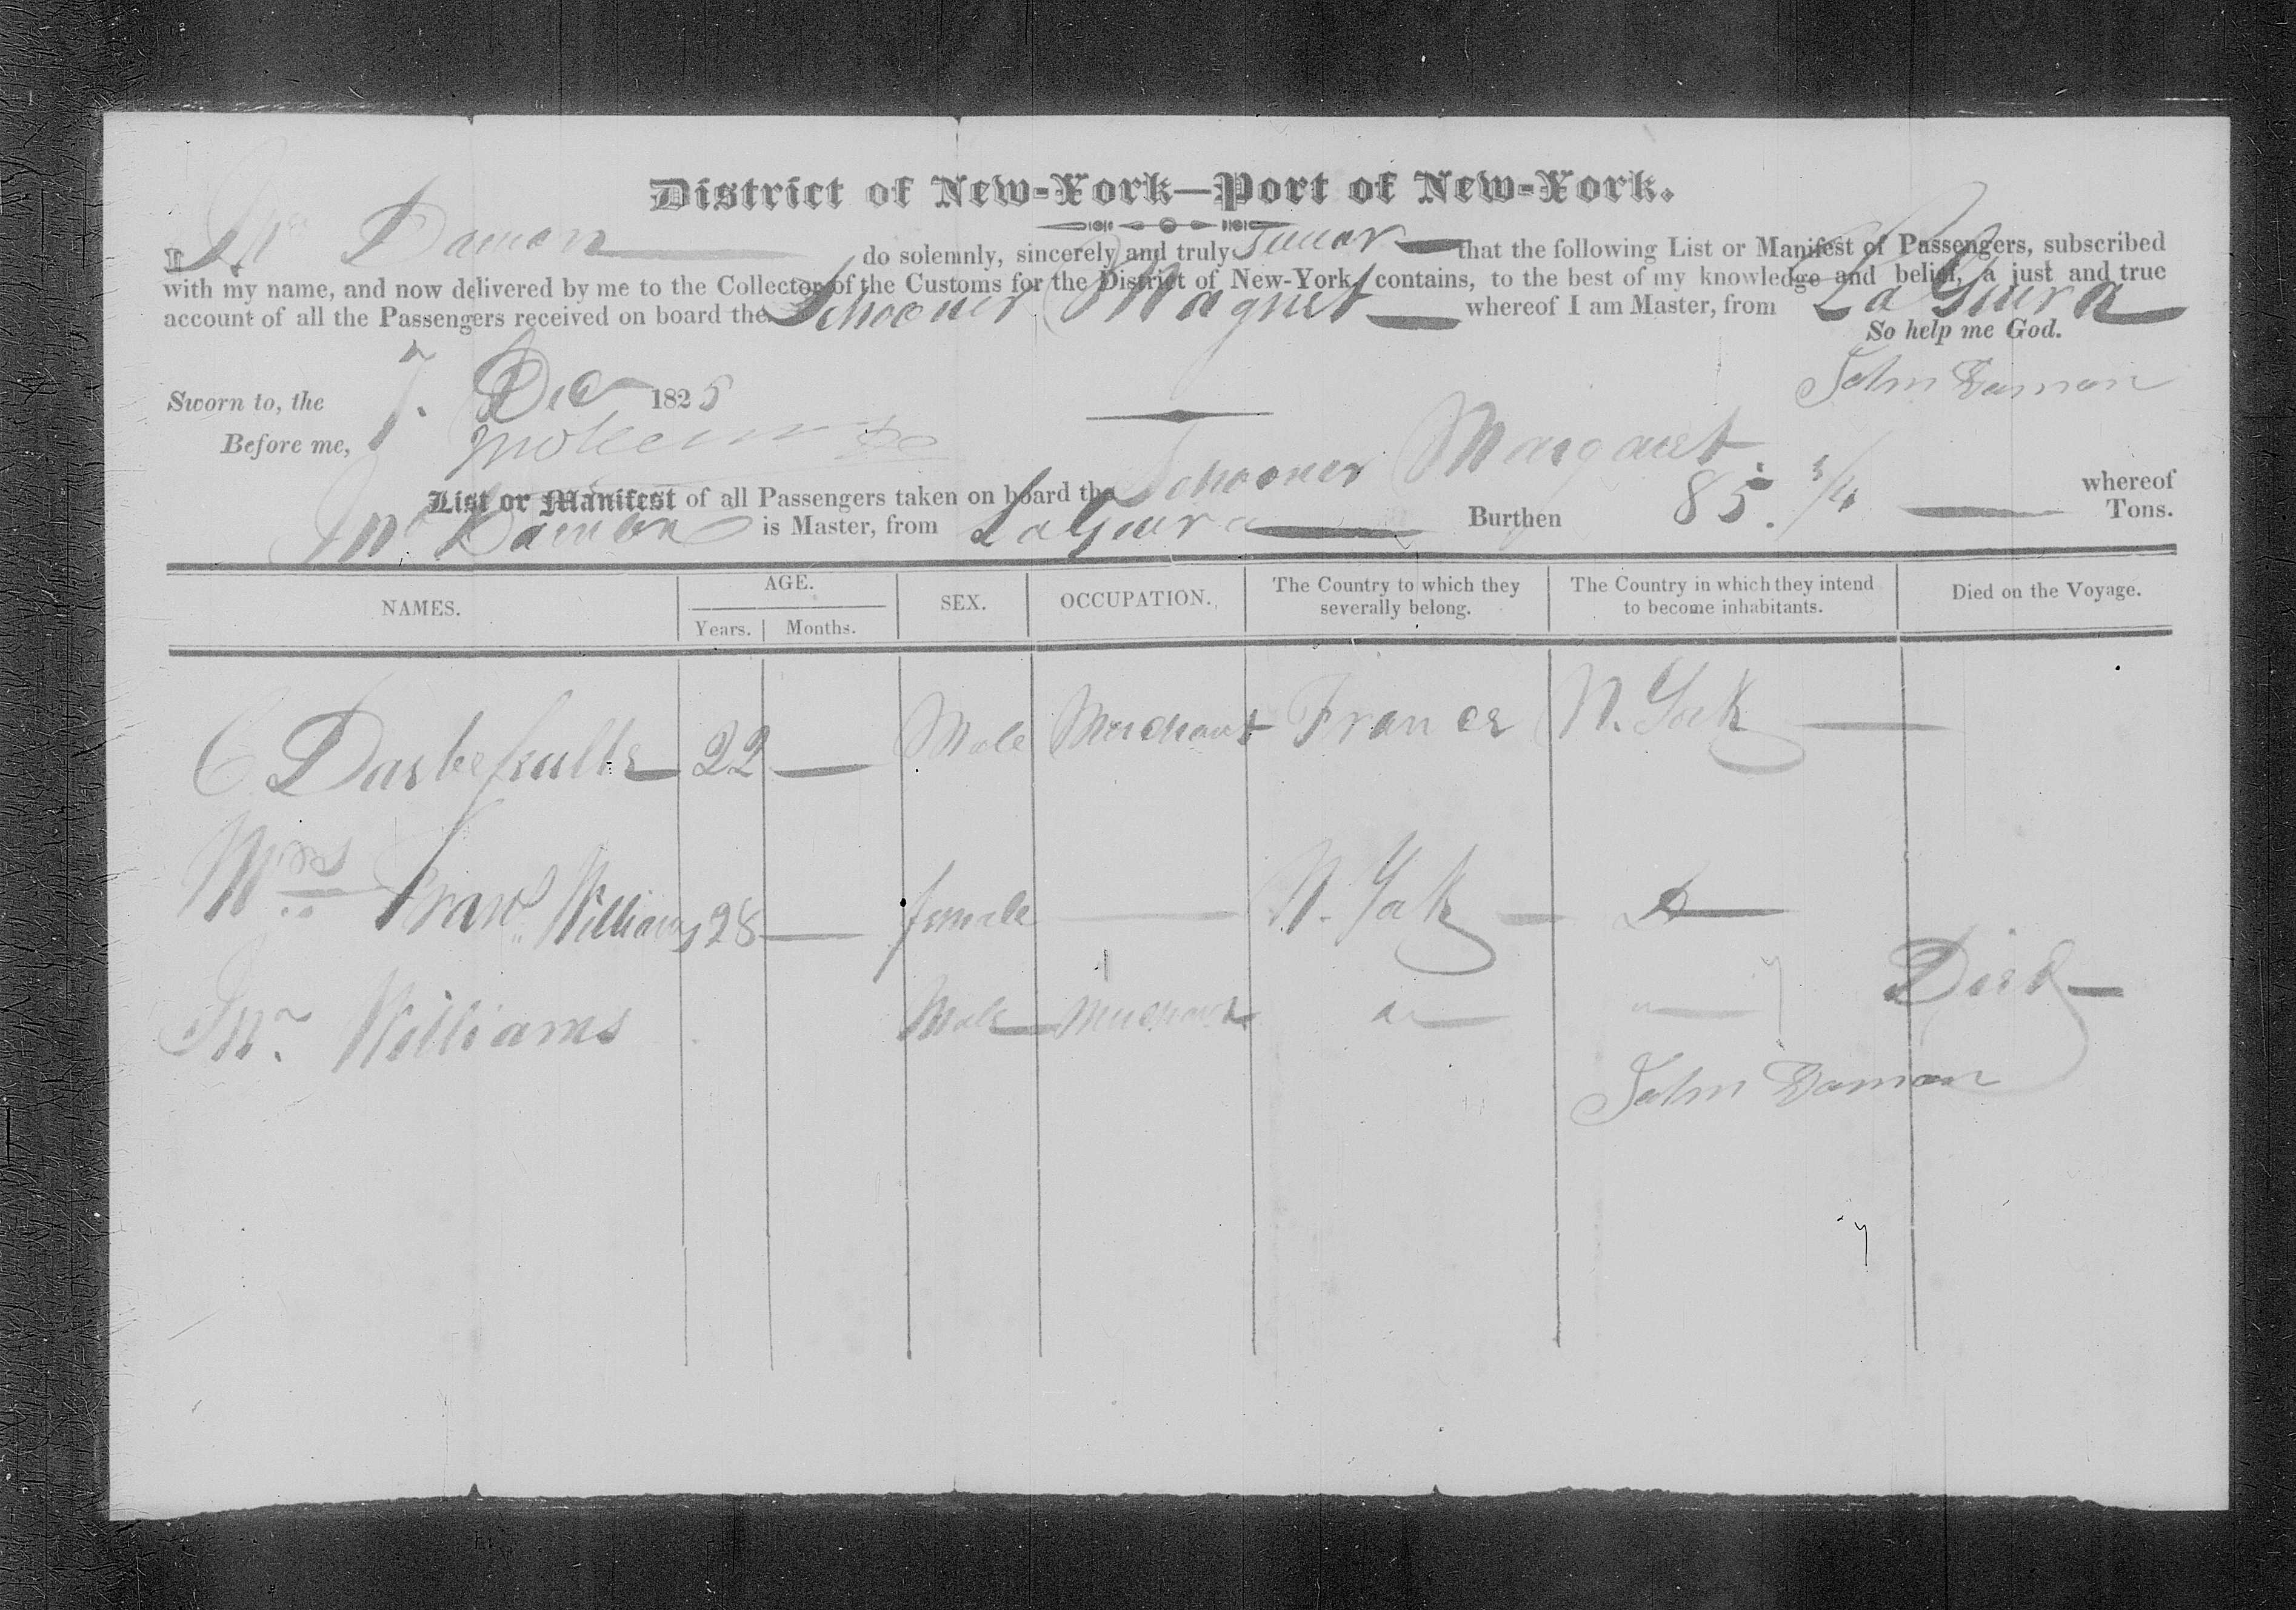 District of New-York—Port of New-York.
I Jno Damon do solemnly, sincerely and truly swear that the following List or Manifest of Passengers, subscribed
with my name, and now delivered by me to the Collector of the Customs for the District of New-York, contains, to the best of my knowledge and belief, a just and true
account of all the Passengers received on board the Schooner Magnet whereof I am Master, from LaGuira
So help me God.
Sworn to, the 7. Dec 1825 John Damon
Before me,
List or Manifest of all Passengers taken on board the Schooner Margaret whereof
Jno Damon is Master, from LaGuira Burthen 85. 3/4 Tons.
NAMES. AGE. Years. Months. SEX. OCCUPATION. The Country to which they severally belong. The Country in which they intend to become inhabitants. Died on the Voyage.
C 22 — Male Merchant France N. York —
Mrs Williams 28 — female — N. York — Do —
Williams Male Merchant Died —
John Damon